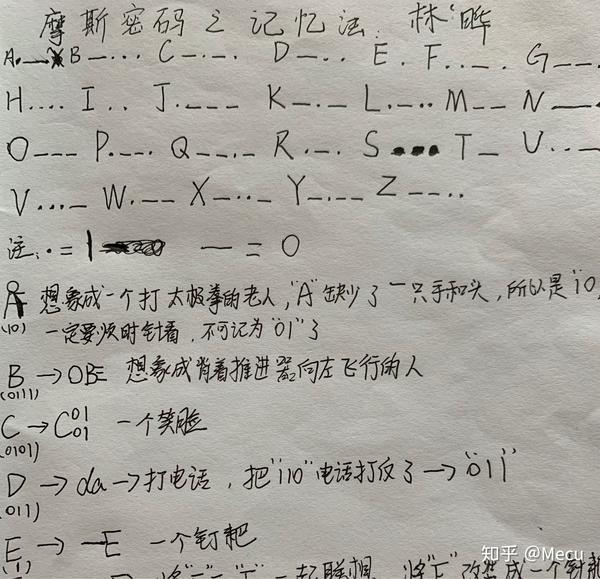 摩斯密码之记忆法. 林晔
A.— B —... C —.—. D —.. E . F ..—. G ——.
H .... I .. J .——— K —.— L .—.. M —— N —.
O ——— P .——. Q ——.— R .—. S ... T — U ..—
V ...— W .—— X —..— Y —.—— Z ——..
注: . = 1 — = 0
A 想象成一个打太极拳的老人,"A"缺少了一只手和头,所以是"10,
(10) 一定要顺时针看,不可记为"01"了
B → OBE 想象成背着推进器向左飞行的人
(0111)
C → C 01 01 一个笑脸
(0101)
D → da → 打电话,把"110"电话打反了 → "011"
(011)
E → —E 一个钉耙
(1)
一起联想
知乎 @Mecu